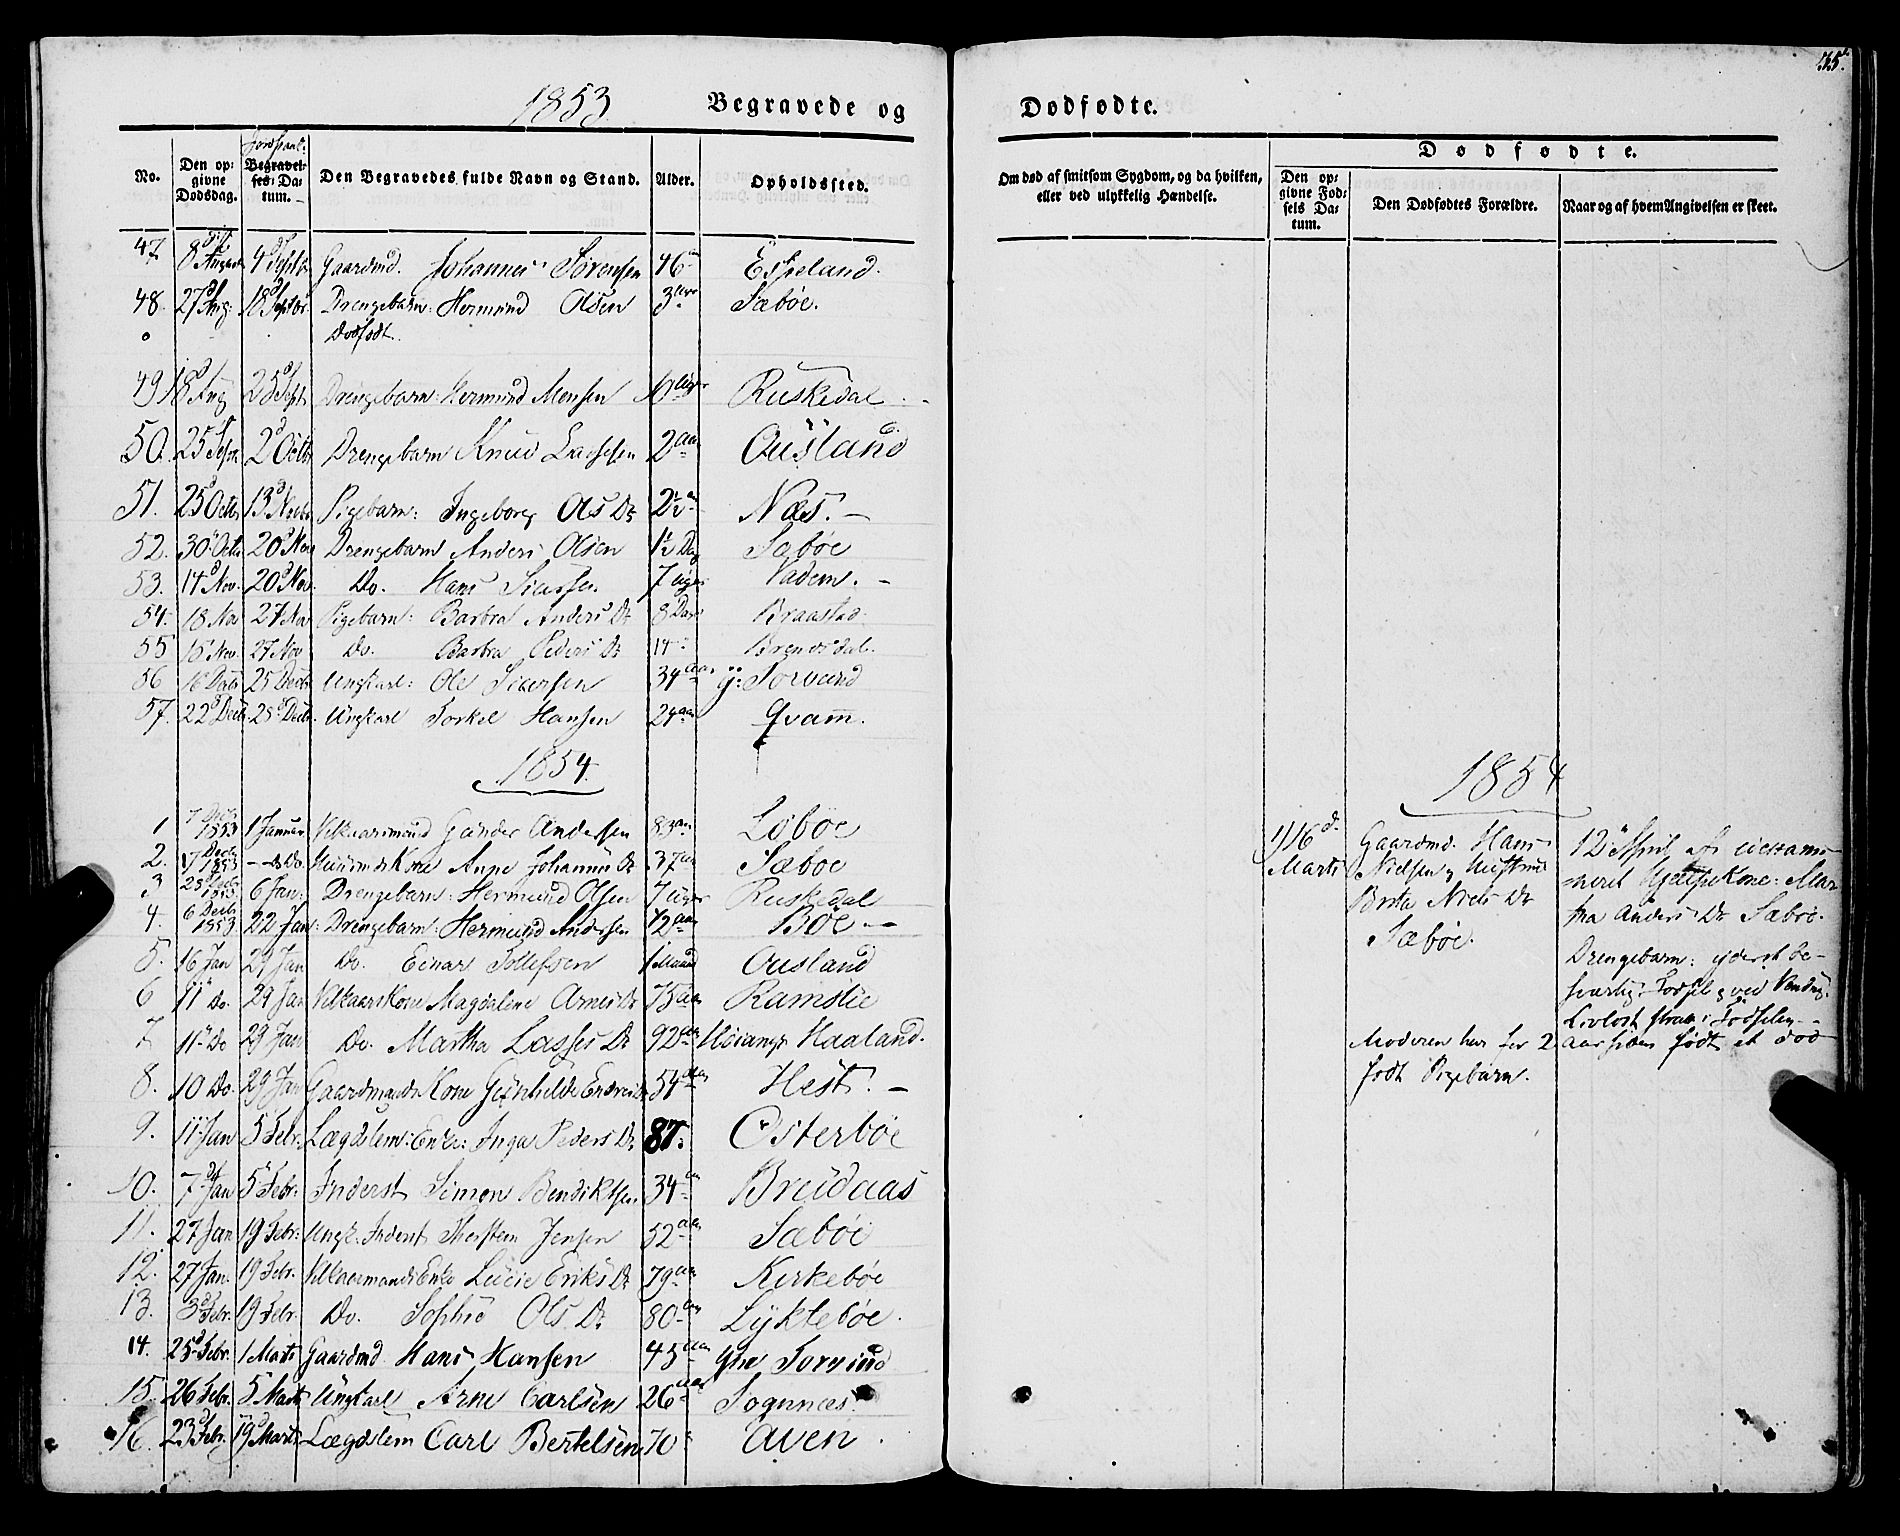 1853
Begravede og
No.
Den op:
givne
Dødsdag.
Jordpaak:
Begravel-
ses: Da-
tum.
Den Begravedes fulde Navn og Stand.
Alder.
Opholdssted.
47 8de 4d Septbr Gaardmd. Johannes Sörensen 46 aar Espeland.
48. 27d Aug. 18d Septbr. Drengebarn: Hermund Olsen 3 Sæbøe.
Dødfødt.
49 18d Aug 25d Sept. Drengebarn: Hermund Monsen Ruskedal
50. 25 Septr 2d Octbr Drengebarn Knud Lassesen 2 aar Ousland
51. 25d Octbr 13d Novbr Pigebarn: Ingeborg Ols Dr 2½ aar Næs. —
52. 30 Octbr 20d Nov Drengebarn Anders Olsen 1½ Dag Sæbøe
53. 14d Nov. 20d Nov. Do. Hans Siursen 7 Uger Vadem. —
54. 18 Nov 27 Nov Pigebarn: Barbra Anders Dr 8 Dage Braastad
55 15 Nov. 27 Nov Do. Barbra Peders Dr 14 Brendsdal.
56 16 Decbr 25 Decbr Ungkarl: Ole Siursen 34 aar y: Torvund
57. 22d Decbr 25d Decbr. Ungkarl Torkel Hansen 24 aar Qvamm.
1854.
1 7 Decbr 1853 1 Januar Vilkaarsmand Gunder Andersen 83 aar Løbøe
2. 17 Decbr 1853 — Do. Huusmds Kone Anne Johannes Dr 37 aar Sæbøe
3 Decbr 1853 6 Jan: Drengebarn: Hermund Olsen 7 Uger Ruskedal
4. 6 Decbr 1853 22 Jan: Drengebarn: Hermund Andersen ½ aar Bøe —
5. 16 Jan 29 Jan Do. Einar Tollefsen 1 Maaned Ousland
6 11 Do. 29 Jan Vilkaarskone Magdalene Arnes Dr 75 aar Ramslie
7. 11 Do 29 Jan Do. Martha Lasses Dr 92 aar Høiangs Haaland.
8. 10 Do. 29 Jan Gaardmands Kone Gunhilde Endres Dr 54 aar Hest. —
9. 11 Jan 5 Febr. Lægdslem: Enke: Inga Peders Dr 87. Østerbøe
10. 7d Jan 5 Febr. Inderst Simon Bendiktsen 34 aar Bruudaas
11. 27 Jan 19 Febr: Ungk. Inderst Thorsten Jensen 52 aar Sæbøe
12. 27 Jan. 19 Febr. Vilkaarmands Enke Lucie Eriks Dr 79 aar Kirkebøe
13. 3d Febr. 19 Febr. Do. Sophie Ols Dr 80 aar Lyktebøe.
14. 25d Febr. 1 Marts Gaardmd Hans Hansen 45 aar Yttre Torvund
15. 26 Febr. 5 Marts Ungkarl Arne Carlsen 26 aar Sognnæs
16. 23d Febr. 19d Marts Lægdslem Carl Bertelsen 70 Aven.
Dødfødte.
Om død af smitsom Sygdom, og da hvilken,
eller ved ulykkelig Hændelse.
Dødfødte.
Den op-
givne Fød-
sels Da-
tum.
Den Dødfødtes Forældre.
Naar og af hvem Angivelsen er skeet.
1854
1/ 16d.
Marts
Gaardmd. Hans
Nielsen og Hustrue
Brita Niels Dr
Sæbøe.
Moderen har for 2
født Pigebarn.
12 April af uexami-
neret Hjelpekone: Mar
tha Anders Dr Sæbøe.
Drengebarn: yderst be-
sværlig Fødsel og ved Vending.
Livløst strax i Fødselen
aar siden født et død